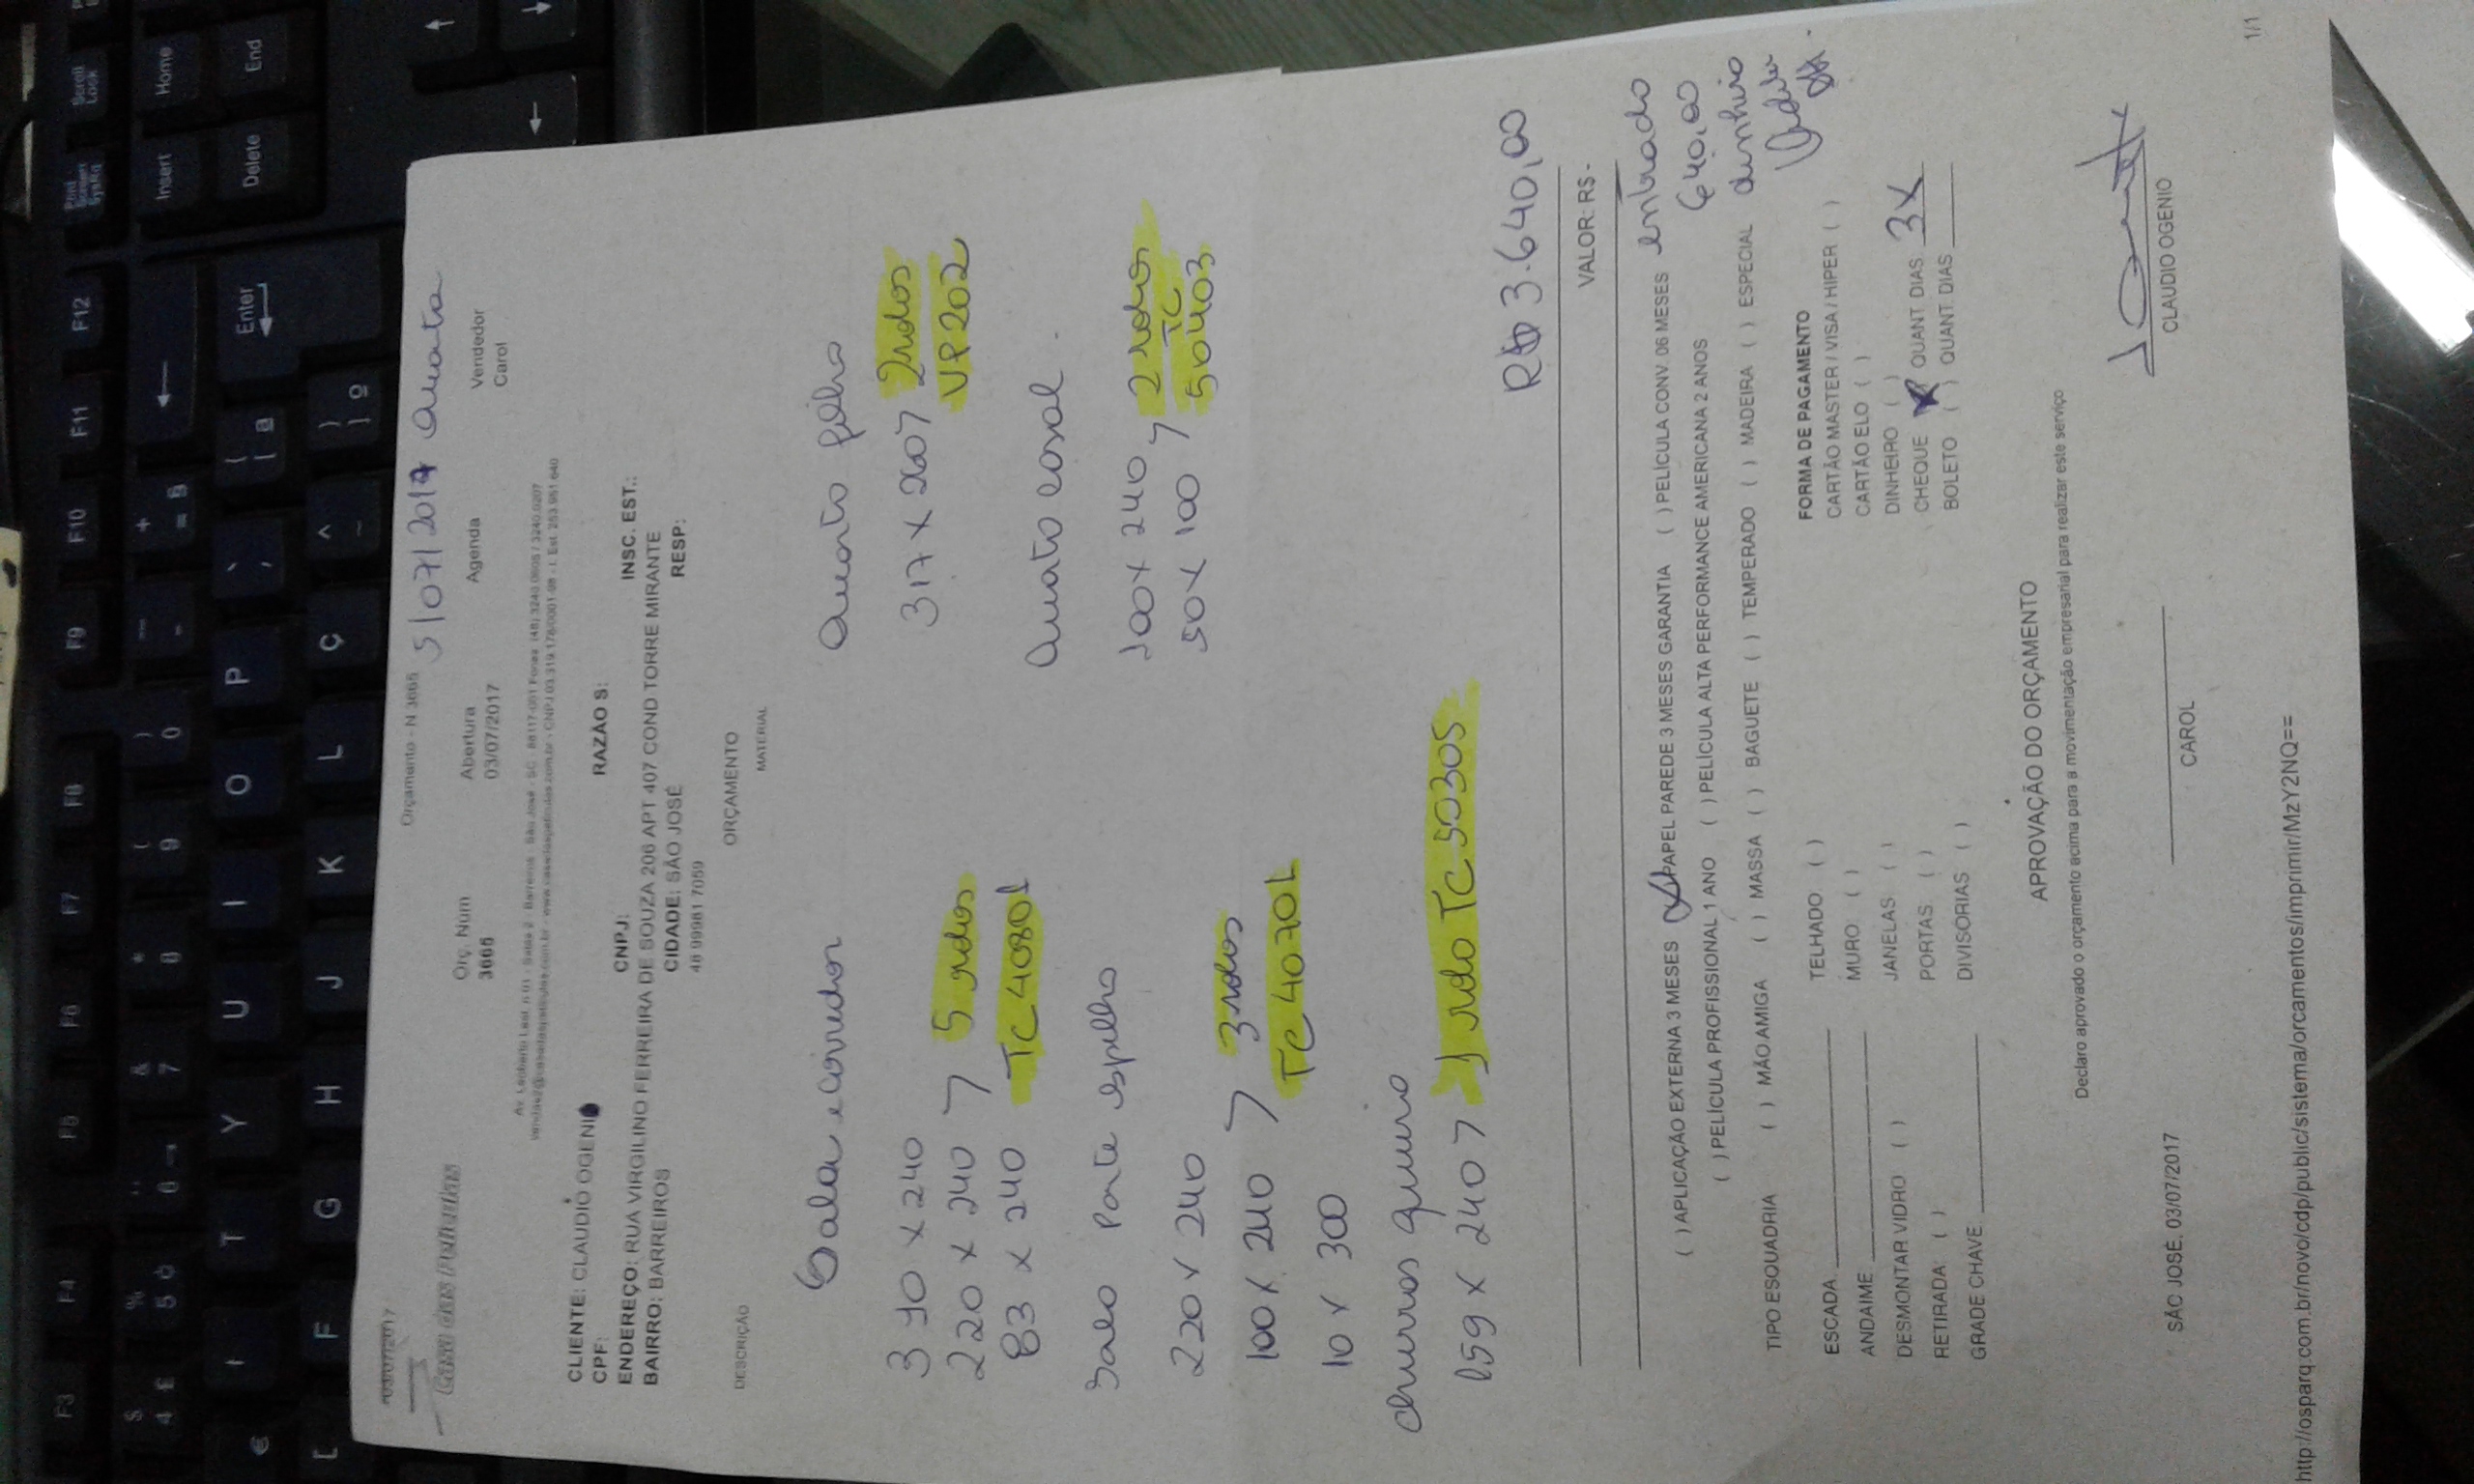 03/07/2017
Orçamento - N 3665
5/07/2017 Quarta
Casa das Películas
Orç. Num
3665
Abertura
03/07/2017
Agenda
Vendedor
Carol
CLIENTE: CLAUDIO OGENIO
CPF:
CNPJ:
RAZÃO S:
INSC. EST.:
ENDEREÇO: RUA VIRGILINO FERREIRA DE SOUZA 206 APT 407 COND TORRE MIRANTE
BAIRRO: BARREIROS
CIDADE: SÃO JOSÉ
RESP:
48 99961 7059
ORÇAMENTO
DESCRIÇÃO
MATERIAL
Sala e corredor
310 x 240
220 x 240
83 x 240
5 rolos
TC 40801
Sala Parte espelho
220 x 240
100 x 240
10 x 300
3 rolos
TC 40701
259 x 240
1 rolo TC 50305
Quarto filho
317 x 260
2 rolos
VP202
Quarto casal.
100 x 240
50 x 100
2 rolos
TC
50403
R$ 3.640,00
VALOR: R$ -
( ) APLICAÇÃO EXTERNA 3 MESES (X) PAPEL PAREDE 3 MESES GARANTIA ( ) PELÍCULA CONV. 06 MESES
( ) PELÍCULA PROFISSIONAL 1 ANO ( ) PELÍCULA ALTA PERFORMANCE AMERICANA 2 ANOS
entrada
640,00
dinheiro
TIPO ESQUADRIA ( ) MÃO AMIGA ( ) MASSA ( ) BAGUETE ( ) TEMPERADO ( ) MADEIRA ( ) ESPECIAL
ESCADA
ANDAIME
DESMONTAR VIDRO ( )
RETIRADA: ( )
GRADE CHAVE
TELHADO ( )
MURO: ( )
JANELAS ( )
PORTAS ( )
DIVISÓRIAS ( )
FORMA DE PAGAMENTO
CARTÃO MASTER / VISA / HIPER ( )
CARTÃO ELO ( )
DINHEIRO ( )
CHEQUE (X) QUANT. DIAS 3X
BOLETO ( ) QUANT. DIAS
APROVAÇÃO DO ORÇAMENTO
Declaro aprovado o orçamento acima para a movimentação empresarial para realizar este serviço
SÃO JOSÉ, 03/07/2017
CAROL
CLAUDIO OGENIO
http://osparq.com.br/novo/cdp/public/sistema/orcamentos/imprimir/MzY2NQ==
1/1